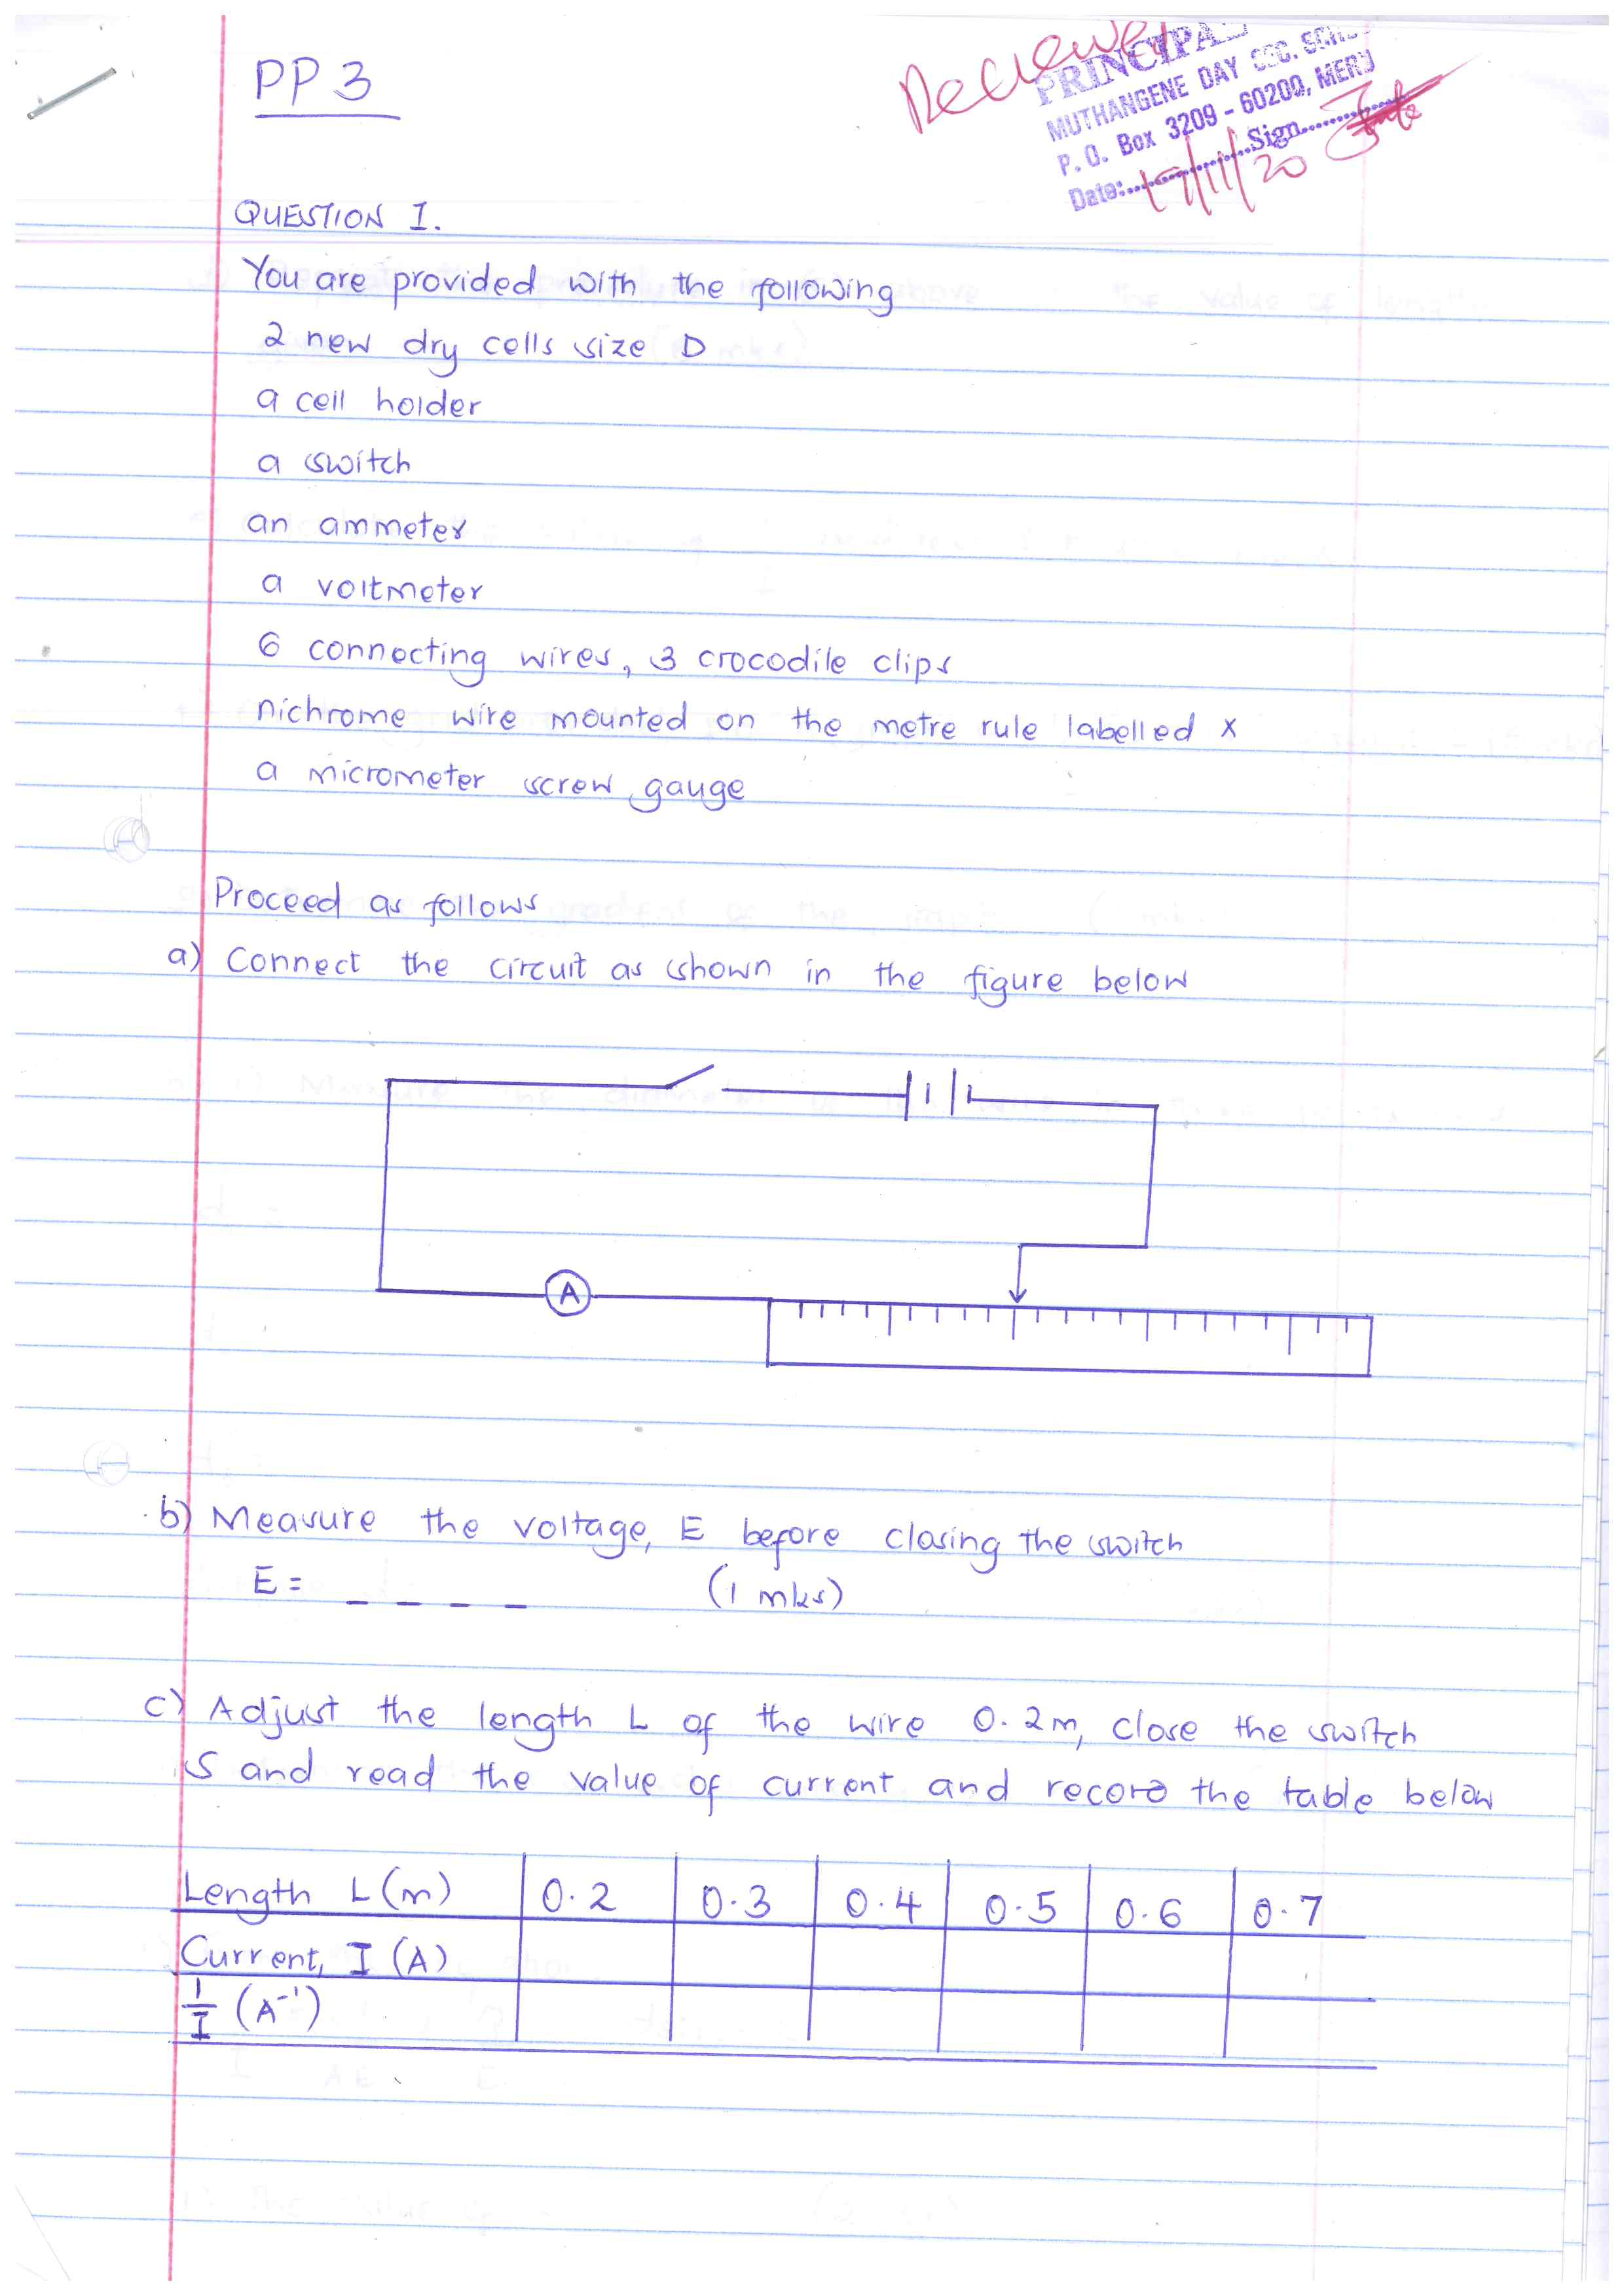 PP 3
Reviewed
PRINCIPAL
MUTHANGENE DAY SEC. SCH.
P. O. Box 3209 - 60200, MERU
Date: 17/11/20 Sign
QUESTION I.
You are provided with the following
2 new dry cells size D
a cell holder
a switch
an ammeter
a voltmeter
6 connecting wires, 3 crocodile clips
nichrome wire mounted on the metre rule labelled x
a micrometer screw gauge
Proceed as follows
a) Connect the circuit as shown in the figure below
A
b) Measure the voltage, E before closing the switch
E = _ _ _ _ (1 mks)
c) Adjust the length L of the wire 0.2m, close the switch
S and read the value of current and record the table below
Length L(m) 0.2 0.3 0.4 0.5 0.6 0.7
Current, I (A)
1/I (A⁻¹)